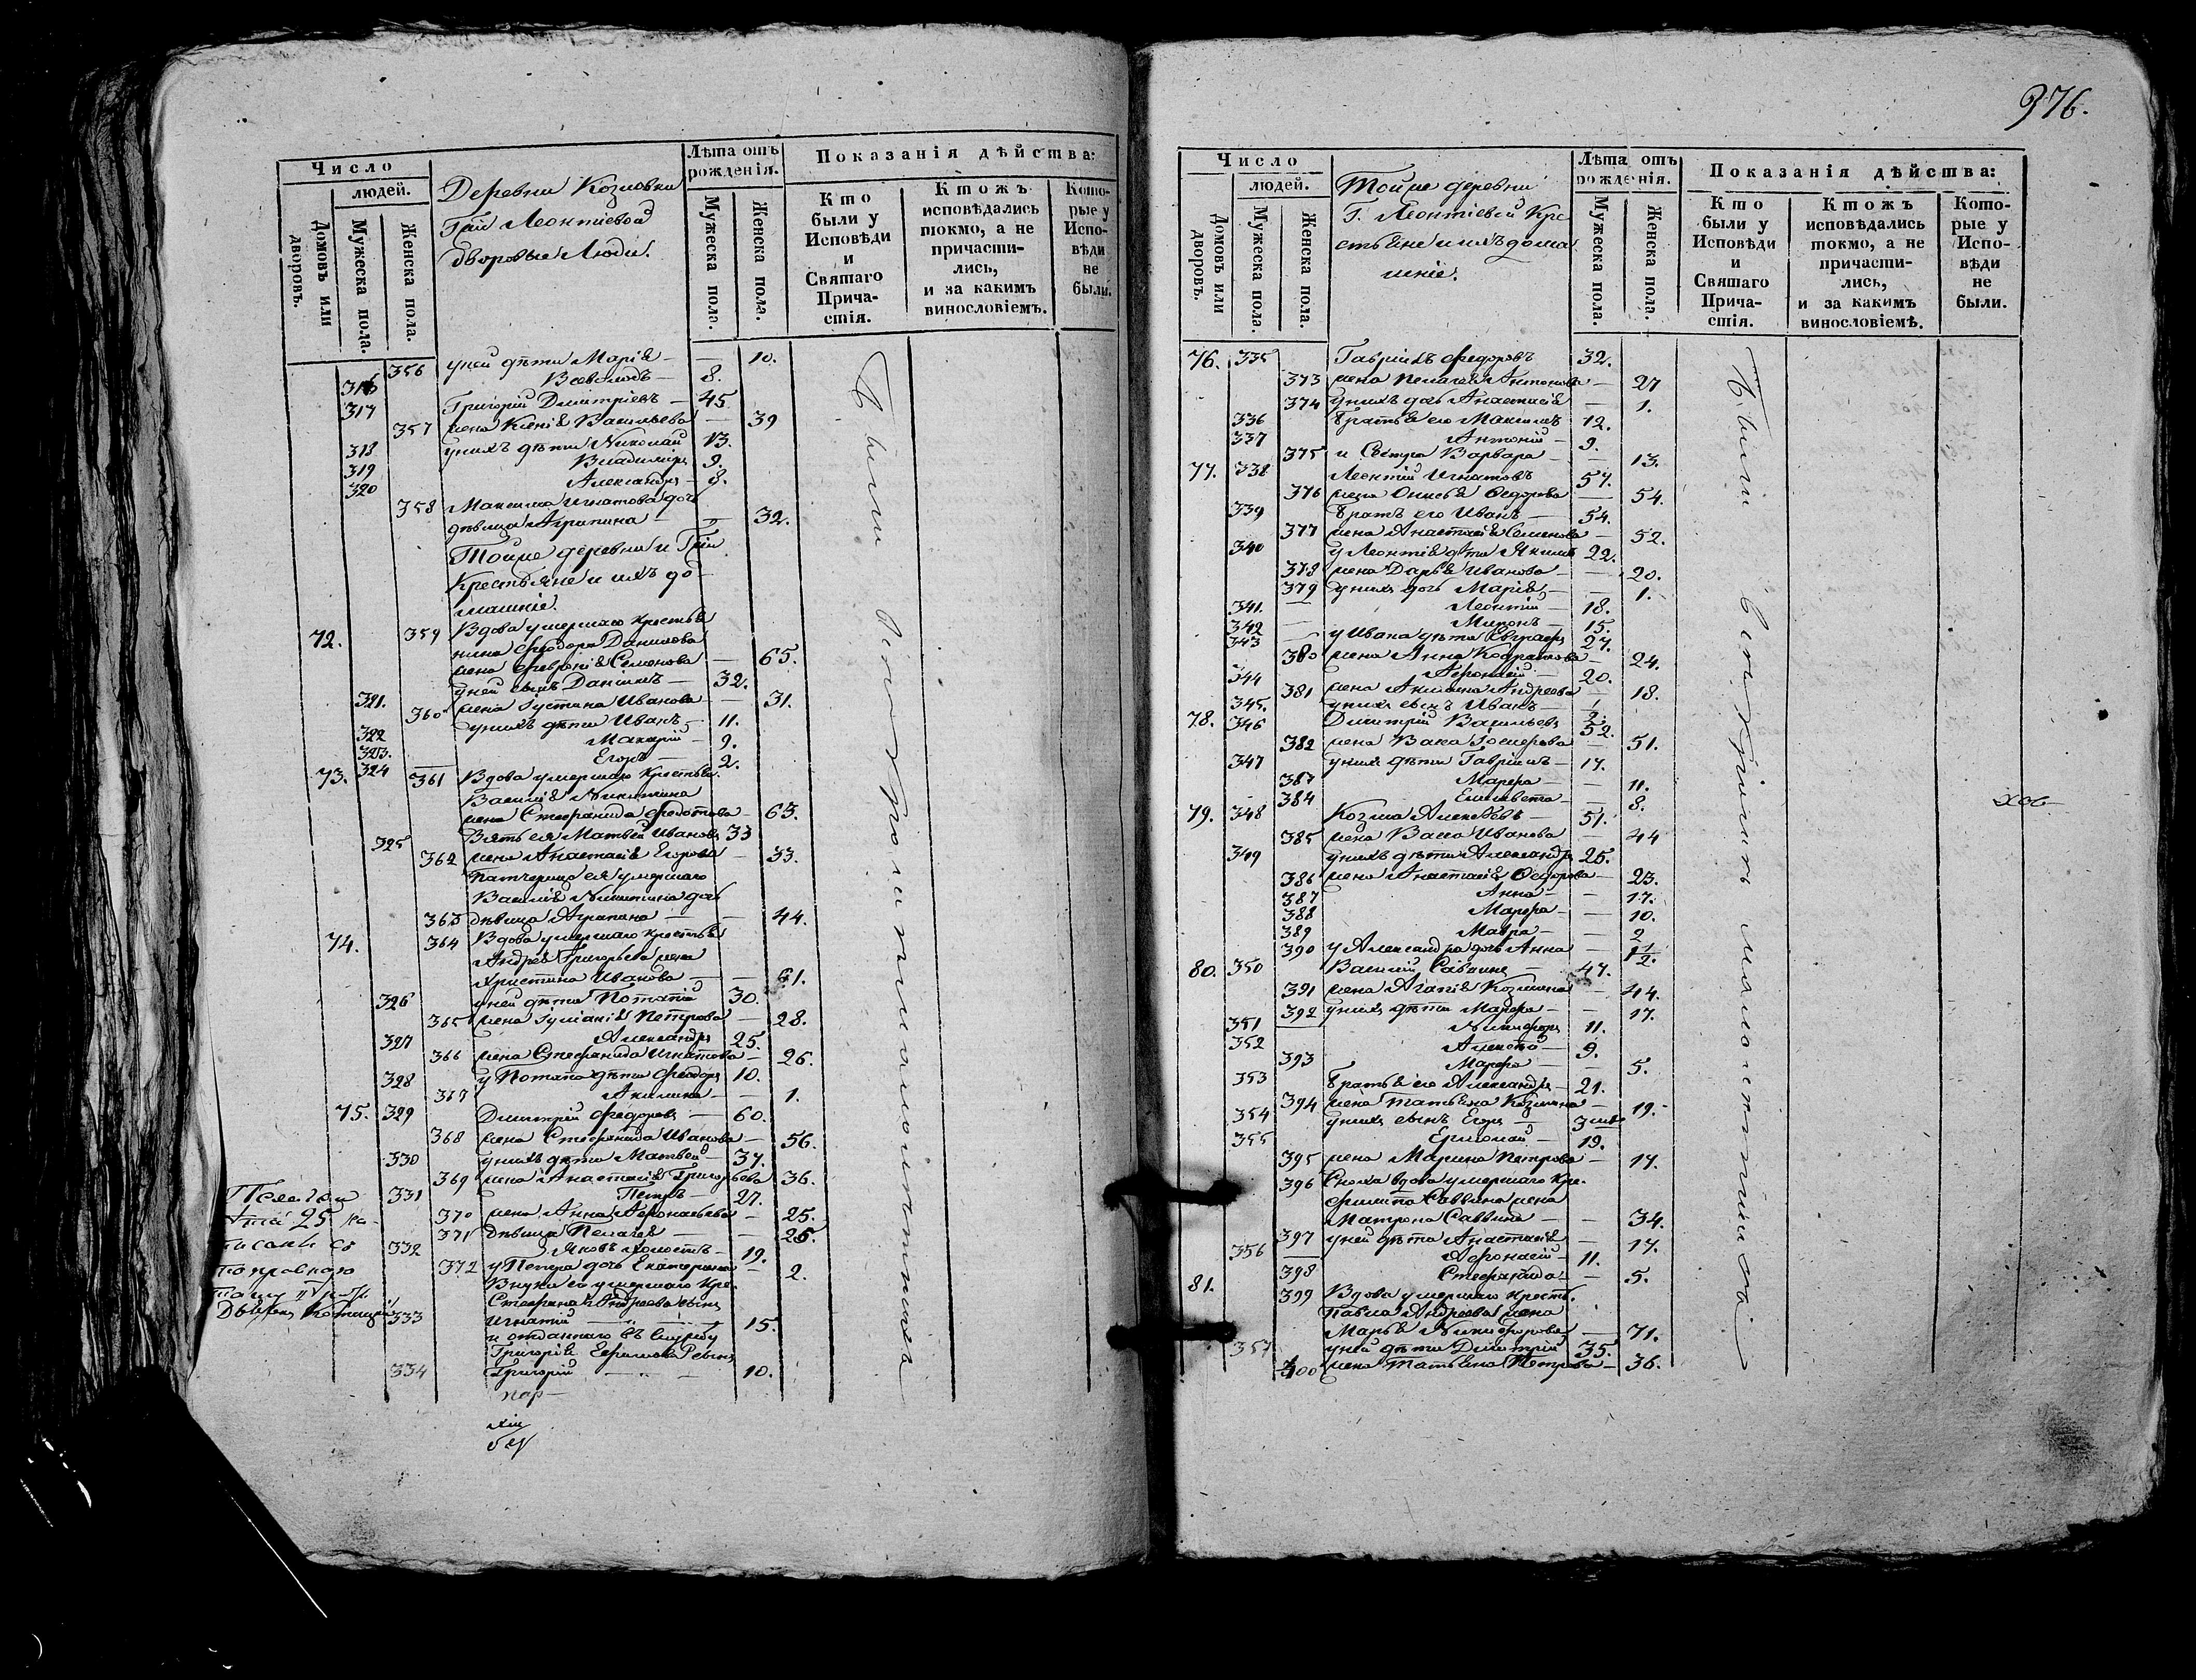 Число
людей.
Домовъ или дворовъ.
Мужеска пола.
Женска пола.
Деревни Козловки
Гжи Леонтіевой
дворовые Люди.
Лѣта отъ рожденія.
Мужеска пола.
Женска пола.
Показанія дѣйства:
Кто были у Исповѣди и Святаго Причастія.
Ктожъ исповѣдались токмо, а не причастились, и за какимъ винословіемъ.
Которые у Исповѣди не были.
356 у ней дѣти Марія — — 10.
316 Всеволодъ — 8.
317 Григорій Дмитріевъ — 45
357 жена Ксенія Васильева — 39
318 у нихъ дѣти Николай 13.
319 Владиміръ 9.
320 Александръ — 8.
358 Максима Игнатова дочь
дѣвица Агрипина — — 32.
Тойже деревни и Гжи
Крестьяне и ихъ до-
машніе.
72. 359 Вдова умершаго крестья
нина Феодора Данилова
жена Февронія Семенова — 65.
321. у ней сынъ Даніилъ — 32.
360 жена Іустина Иванова — 31.
322 у нихъ дѣти Иванъ — 11.
323. Макарій — 9.
324 Егоръ — 2.
73. 361 Вдова умершаго крестья.
Василія Никитина
жена Стефанида Федотова — 63.
325 Зять ея Матвей Ивановъ 33
362 жена Анастасія Егорова — 33.
Патчерица ея умершаго
Василія Никитина дочь
363 дѣвица Агрипина — — 44.
74. 364 Вдова умершаго крестья
Андрея Григорьева жена
Христина Иванова — — 61.
326 у ней дѣти Потапій 30.
365 жена Іуліанія Петрова — 28.
327 Александръ 25.
366 жена Стефанида Игнатова — 26.
328 у Потапа дѣти Феодоръ 10.
367 Акилина — — 1.
75. 329 Дмитрій Федоровъ — 60.
368 жена Стефанида Иванова — 56.
330 у нихъ дѣти Матвей — 37.
369 жена Анастасія Григорьева 36.
331 Петръ — 27.
370 жена Анна Афонасьева — 25.
371 дѣвица Пелагія — — 25.
332 Яковъ холостъ — 19.
372 у Петра дочь Екатерина — 2.
Внуки его умершаго кре.
Стефана Андреева сынъ
333 Игнатій — 15.
и отданнаго въ службу
Григорія Ефимова сынъ
334 Григорій — 10.
Были
376.
Число
людей.
Домовъ или дворовъ.
Мужеска пола.
Женска пола.
Тойже деревни
Г. Леонтіевой Кре
стьяне и ихъ дома
шніе.
Лѣта отъ рожденія.
Мужеска пола.
Женска пола.
Показанія дѣйства:
Кто были у Исповѣди и Святаго Причастія.
Ктожъ исповѣдались токмо, а не причастились, и за какимъ винословіемъ.
Которые у Исповѣди не были.
76. 335 Гавріилъ Федоровъ 32.
373 жена Пелагея Антонова — 27
374 у нихъ дочь Анастасія — 1.
336 Братья его Максимъ 12.
337 Антоній — 9.
375 и Сестра Варвара — — 13.
77. 338 Леонтій Игнатовъ 57.
376 жена Ѳедорова — 54.
339 Братъ его Иванъ — 54.
377 жена Анастасія Семенова — 52.
340 у Леонтія дѣти Якимъ 22.
378 жена Дарья Иванова — — 20.
379 у нихъ дочь Марія — — 1.
341. Леонтій — 18.
342 Миронъ — 15.
343 у Ивана дѣти Евграфъ 27.
380 жена Анна Кодратова — 24.
344 Афонасій — 20.
381 жена Акилина Андреева — 18.
345. у нихъ сынъ Иванъ —
78. 346 Дмитрій Васильевъ 52.
382 жена 51.
347 у нихъ дѣти Гавріилъ — 17.
383 Марфа — — 11.
384 Елисавета — — 8.
79. 348 Козма Алексѣевъ — 51.
385 жена Васса Иванова — 44
349 у нихъ дѣти Александръ 25.
386 жена Анастасія Ѳедорова — 23.
387 Анна — — 17.
388 Марфа — — 10.
389 Мавра — — 2
390 у Александра дочь Анна — 1/2.
80. 350 Василій Саввинъ — 47.
391 жена Агапія Козмина — 44.
392 у нихъ дѣти Марфа — — 17.
351 Никифоръ 11.
352 Алексѣй — 9.
393 Марфа — — 5.
353 Братья его Александръ — 21.
394 жена Татьяна Козмина — 19.
354 у нихъ сынъ Егоръ — 3
355 Ермолай — 19.
395 жена Марина Петрова — 17.
396 Сноха вдова умершаго кре.
Филипа Саввина жена
Матрона Саввина — — 34.
397 у ней дѣти Анастасія — 17.
356 Афонасій — 11.
398 Стефанида — — 5.
81. 399 Вдова умершаго крестья.
Павла Андреева жена
Марья Никифорова — 71.
357 у ней дѣти Дмитрій 35.
400 жена Татьяна Петрова — 36.
Были